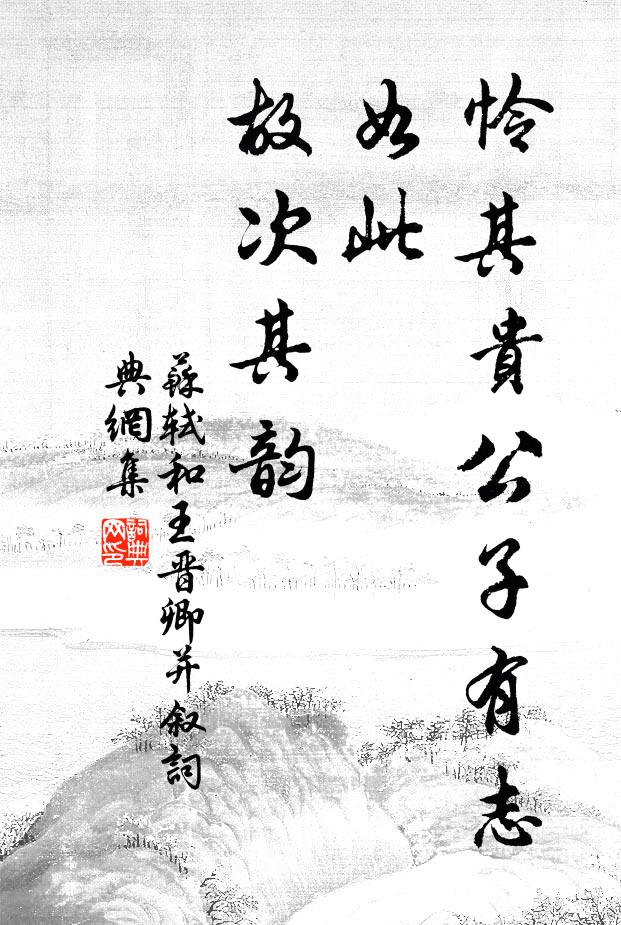 怜其貴公子有志
如此
故次其韵
蘇軾和王晋卿并叙詞
典網集
詞典
网印